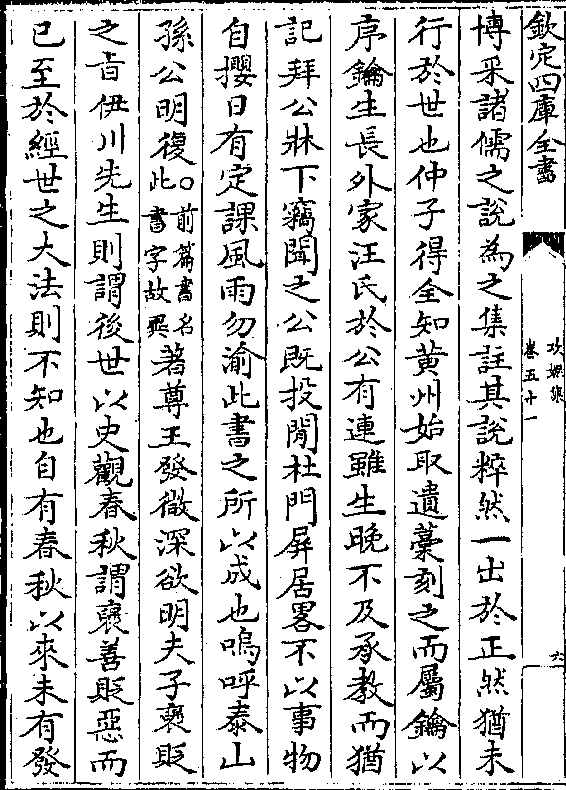 欽定四庫全書
攻媿集
卷五十一
六
博采諸儒之說為之集註其說粹然一出於正然猶未
行於世也仲子得全知黄州始取遺藁刻之而屬鑰以
序鑰生長外家汪氏於公有連雖生晚不及承教而猶
記拜公牀下竊聞之公既投閒杜門屏居畧不以事物
自攖日有定課風雨勿渝此書之所以成也嗚呼泰山
孫公明復○前篇書名此書字故與著尊王發微深欲明夫子褒貶
之旨伊川先生則謂後世以史觀春秋謂褒善貶惡而
已至於經世之大法則不知也自有春秋以來未有發